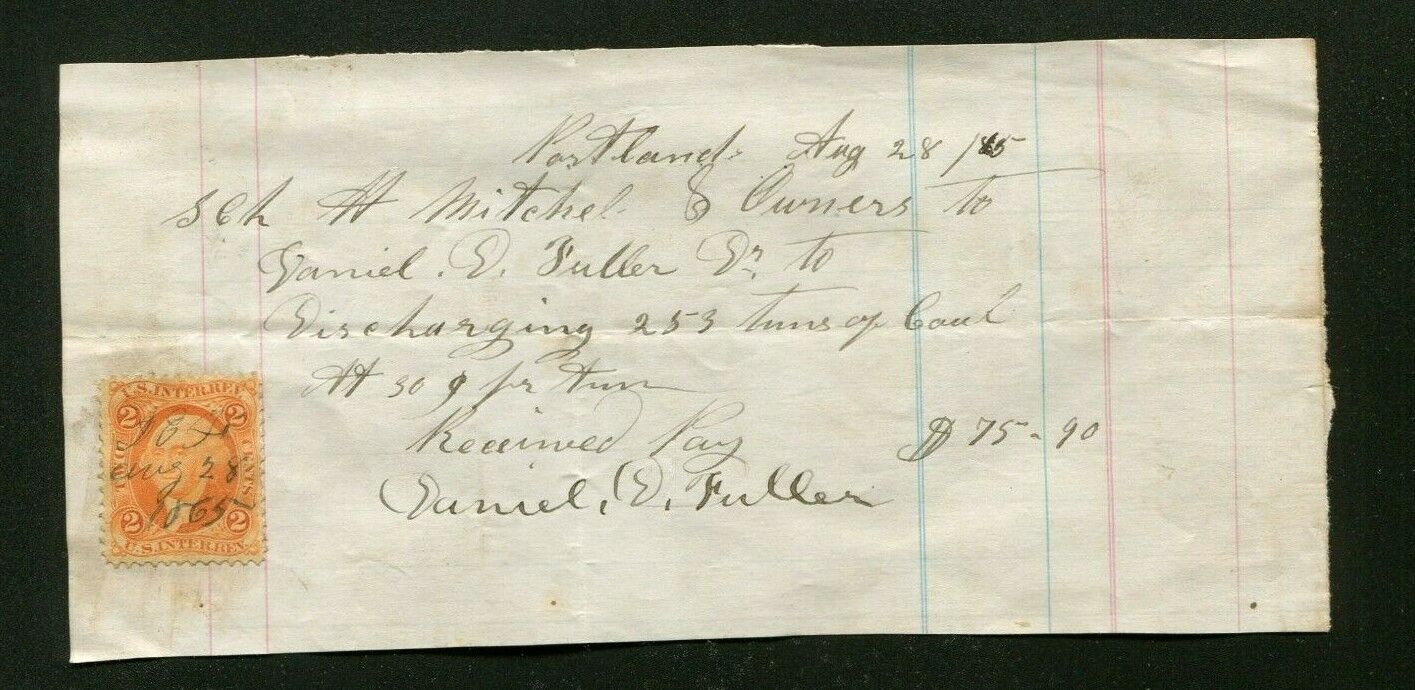 Portland Aug 28 /65
Sch H Mitchel & Owners to
Daniel. D. Fuller Dr. to
Discharging 253 tuns of Coal
At 30 ¢ pr tun $ 75-90
Received Pay
Daniel. D. Fuller
U.S. INTER. REV.
2 2
Aug 28
1865
CENTS.
2 2
U.S. INTER. REV.